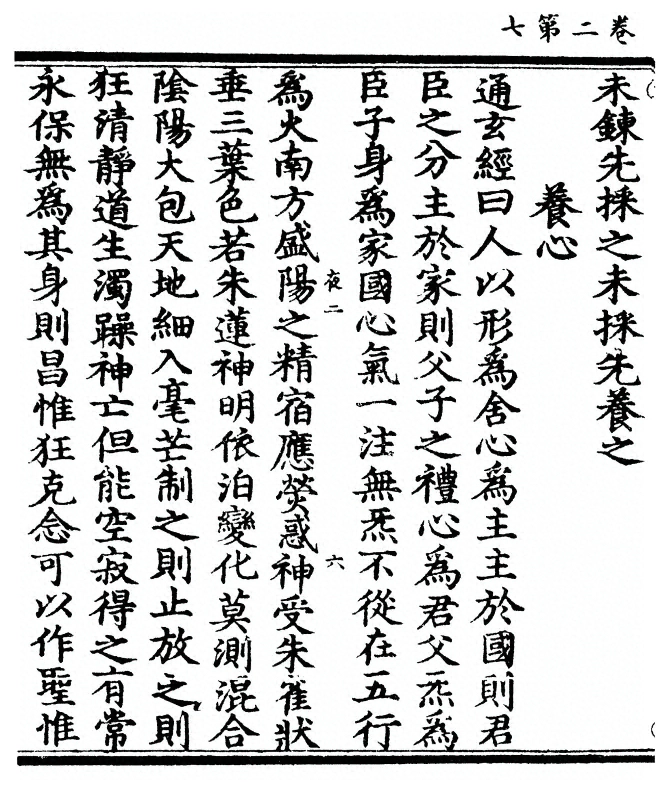 卷二第七
未鍊先採之未採先養之
養心
通玄經曰人以形爲舍心爲主主於國則君
臣之分主於家則父子之禮心爲君父炁爲
臣子身爲家國心氣一注無炁不從在五行
爲火南方盛陽之精宿應熒惑神受朱雀狀
夜二
六
垂三葉色若朱蓮神明依泊變化莫測混合
陰陽大包天地細入毫芒制之則止放之則
狂清靜道生濁躁神亡但能空寂得之有常
永保無爲其身則昌惟狂克念可以作聖惟